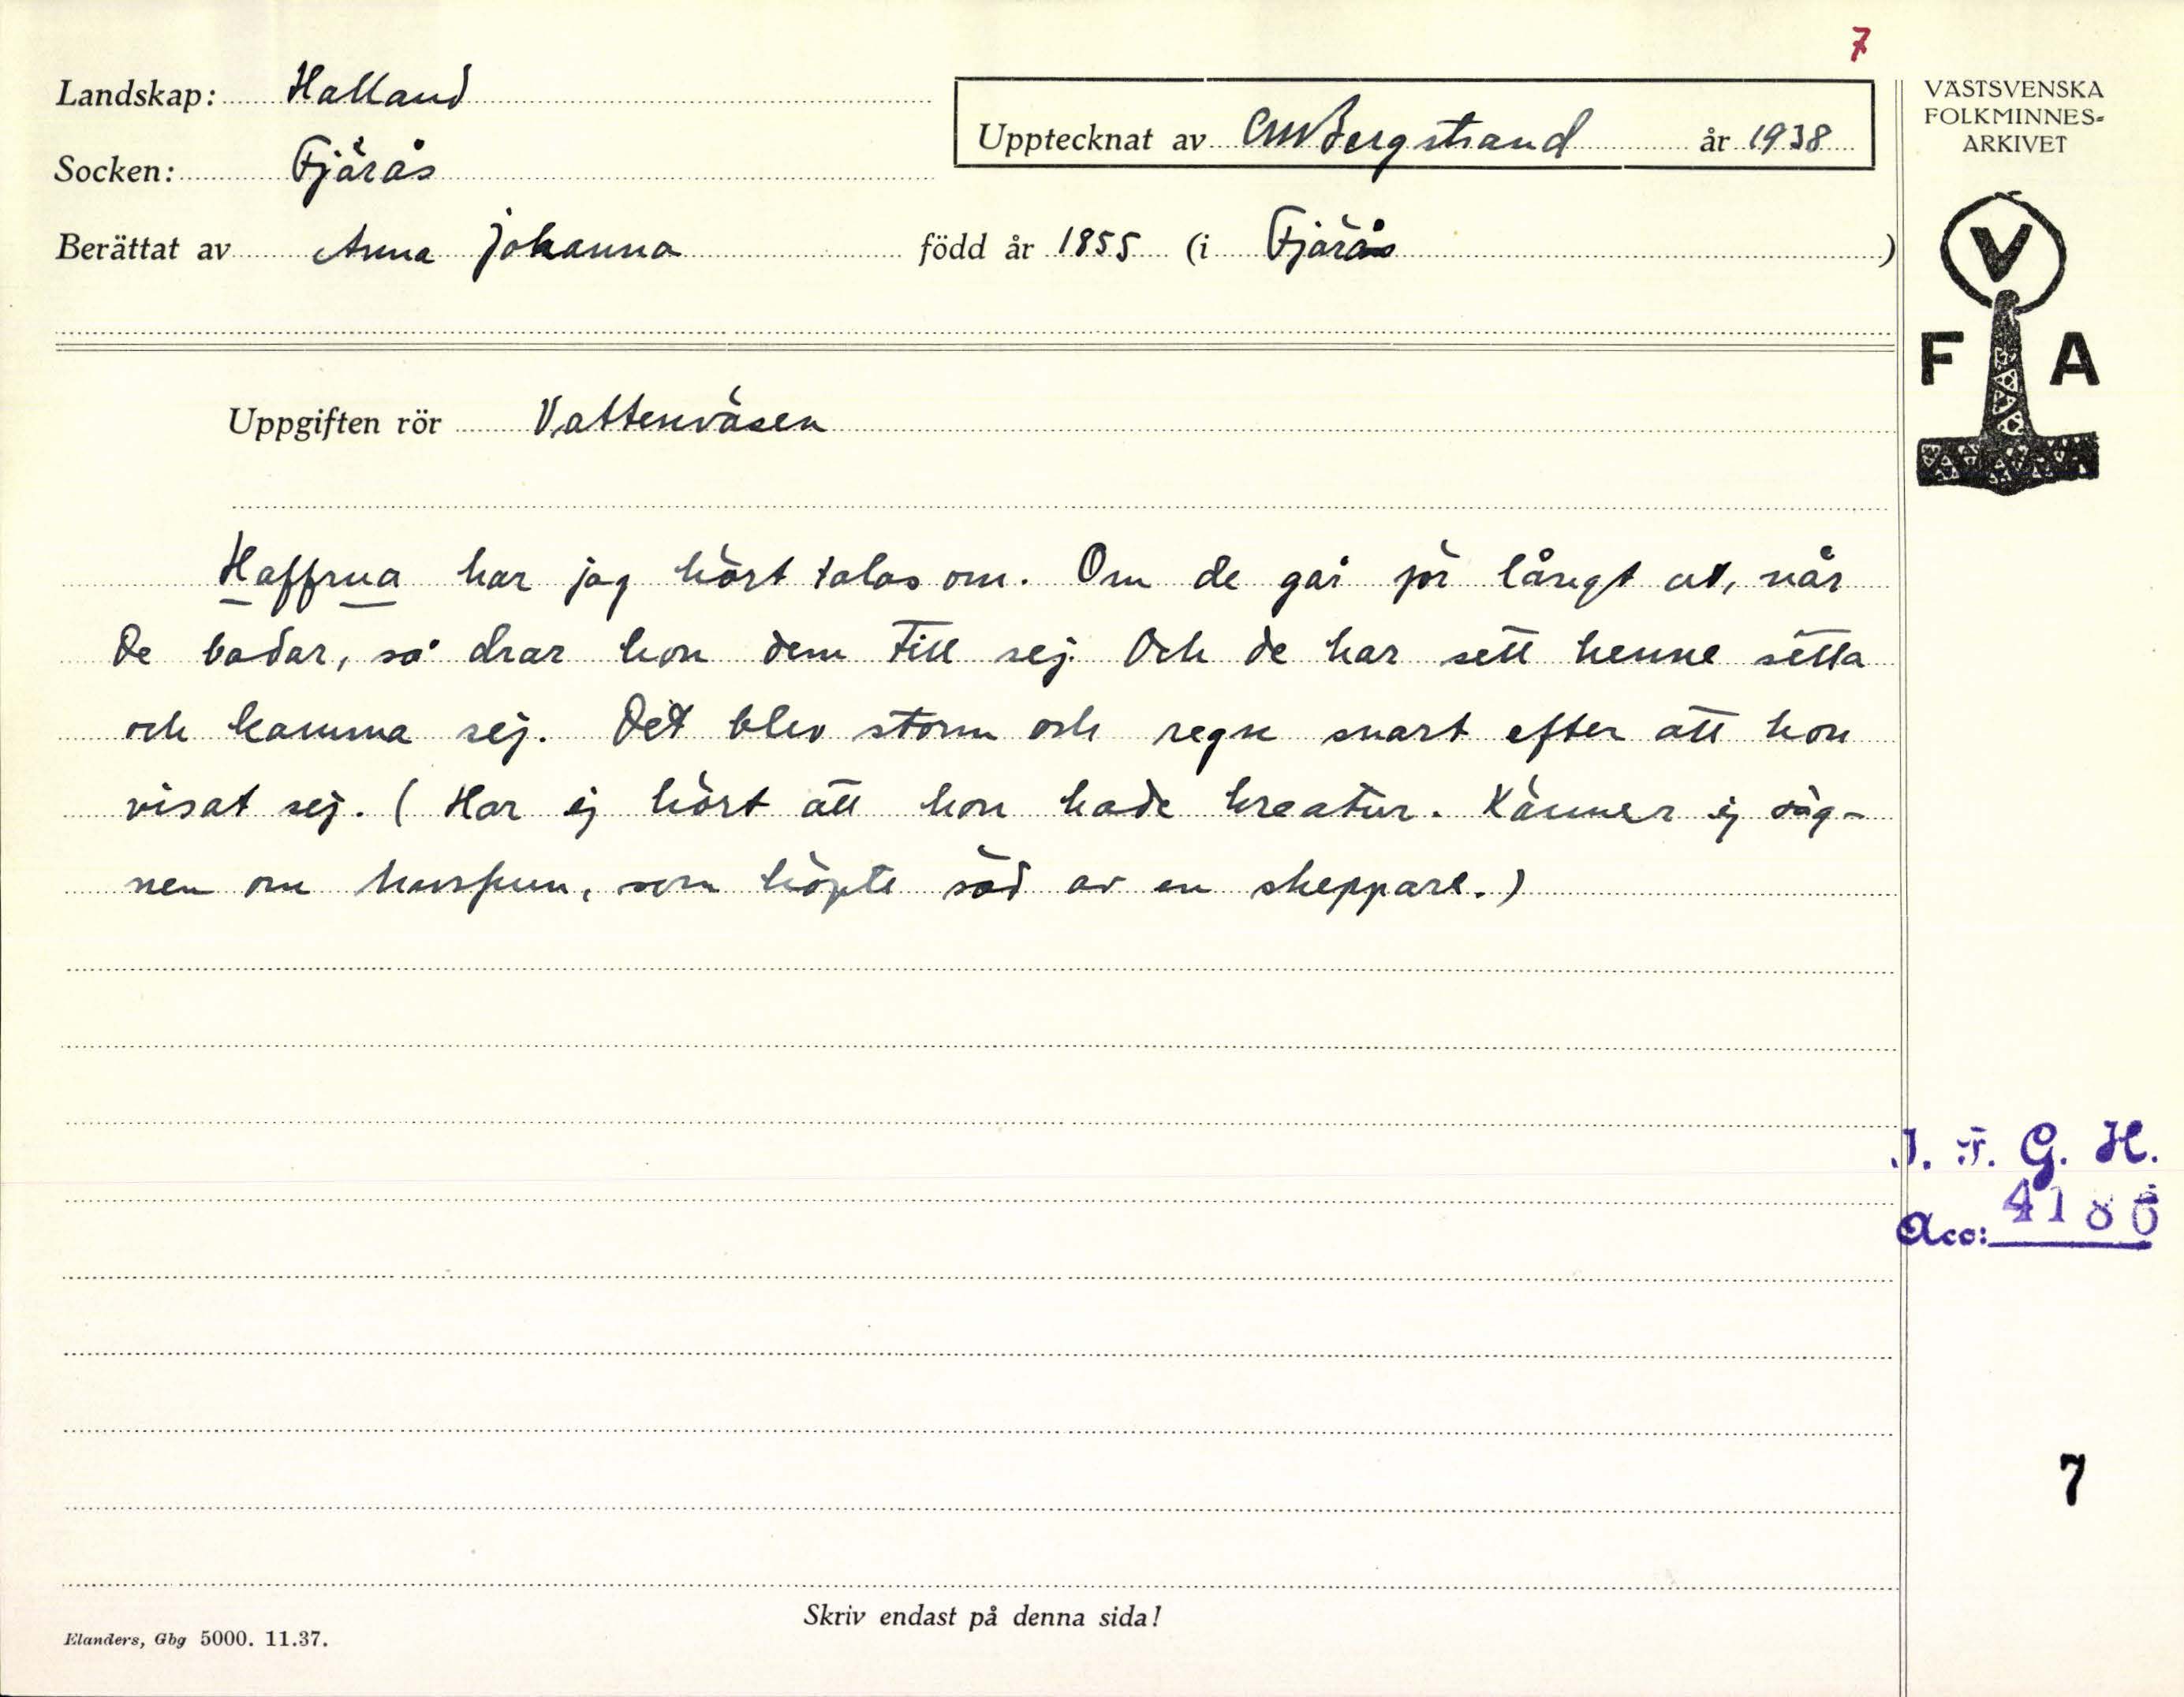 7
Landskap: Halland
Upptecknat av CMBergstrand år 1938
Socken: Fjärås
Berättat av Anna Johanna född år 1855 (i Fjärås )
VÄSTSVENSKA
FOLKMINNES-
ARKIVET
V
F A
Uppgiften rör Vattenväsen
Haffrua har jag hört talas om. Om de går för långt ut, når
de badar, så drar hon dem till sej. Och de har sett henne sitta
och kamma sej. Det blev storm och regn snart efter att hon
visat sej. (Har ej hört att hon hade kreatur. Känner ej säg-
nen om havsfrun, som köpte säd av en skeppare.)
I. F. G. H.
Acc: 4186
7
Skriv endast på denna sida!
Elanders, Gbg 5000. 11.37.